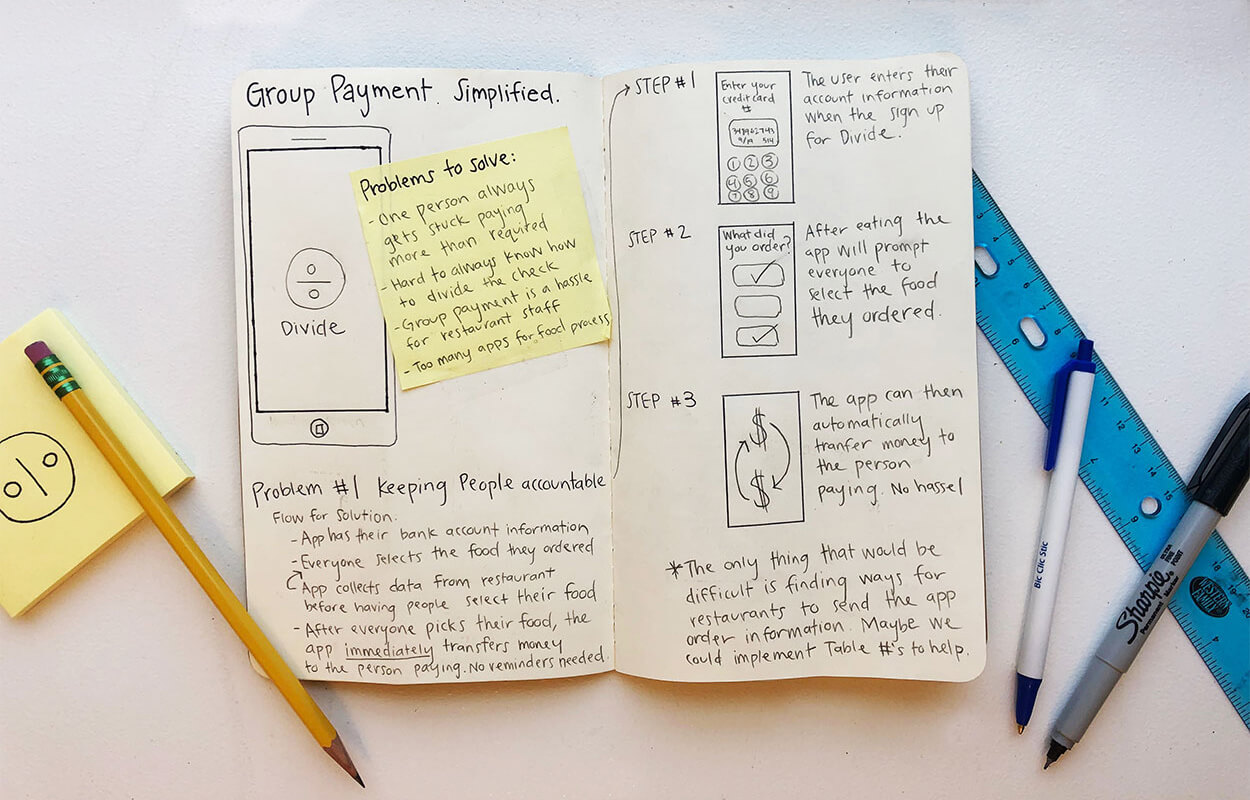 Group Payment. Simplified.
Divide
Problems to solve:
- One person always
gets stuck paying
more than required
- Hard to always know how
to divide the check
- Group payment is a hassle
for restaurant staff
- Too many apps for food process
Problem #1 Keeping People accountable
Flow for solution.
- App has their bank account information
- Everyone selects the food they ordered
App collects data from restaurant
before having people select their food
- After everyone picks their food, the
app immediately transfers money
to the person paying. No reminders needed.
STEP #1
Enter your
credit card
#
9/19 514
1 2 3
4 5 6
7 8 9
The user enters their
account information
when the sign up
for Divide.
STEP #2
What did
you order?
After eating the
app will prompt
everyone to
select the food
they ordered.
STEP #3
$
$
The app can then
automatically
tranfer money to
the person
paying. No hassel
*The only thing that would be
difficult is finding ways for
restaurants to send the app
order information. Maybe we
could implement Table #'s to help.
Bic Clic Stic
Sharpie
WESTCOTT